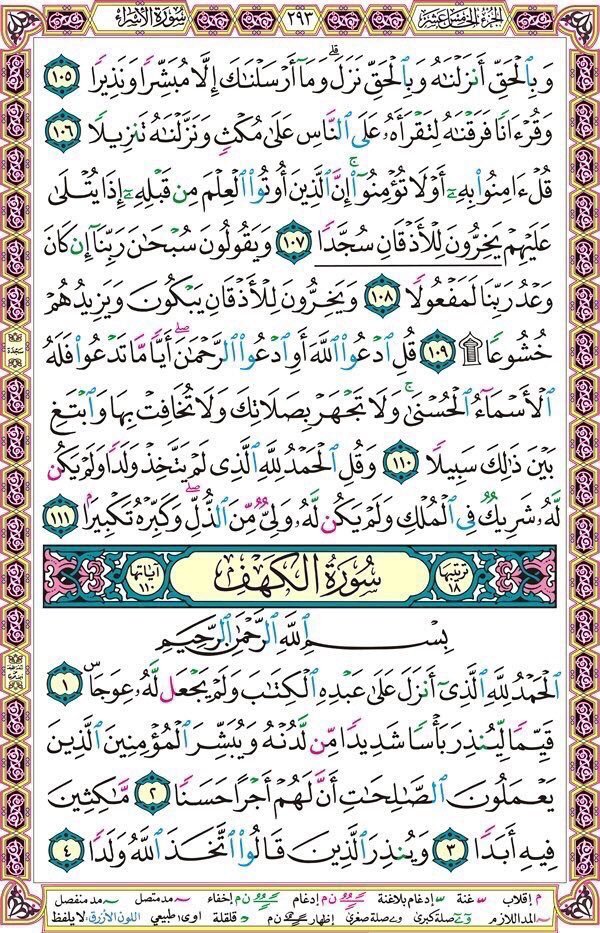 الجزء الخامس عشر ٢٩٣ سورة الإسراء
وَبِٱلْحَقِّ أَنزَلْنَٰهُ وَبِٱلْحَقِّ نَزَلَ ۗ وَمَآ أَرْسَلْنَٰكَ إِلَّا مُبَشِّرًا وَنَذِيرًا ١٠٥
وَقُرْءَانًا فَرَقْنَٰهُ لِتَقْرَأَهُۥ عَلَى ٱلنَّاسِ عَلَىٰ مُكْثٍ وَنَزَّلْنَٰهُ تَنزِيلًا ١٠٦
قُلْ ءَامِنُوا۟ بِهِۦٓ أَوْ لَا تُؤْمِنُوٓا۟ ۚ إِنَّ ٱلَّذِينَ أُوتُوا۟ ٱلْعِلْمَ مِن قَبْلِهِۦٓ إِذَا يُتْلَىٰ
عَلَيْهِمْ يَخِرُّونَ لِلْأَذْقَانِ سُجَّدًا ١٠٧ وَيَقُولُونَ سُبْحَٰنَ رَبِّنَآ إِن كَانَ
وَعْدُ رَبِّنَا لَمَفْعُولًا ١٠٨ وَيَخِرُّونَ لِلْأَذْقَانِ يَبْكُونَ وَيَزِيدُهُمْ
خُشُوعًا ۩ ١٠٩ قُلِ ٱدْعُوا۟ ٱللَّهَ أَوِ ٱدْعُوا۟ ٱلرَّحْمَٰنَ ۖ أَيًّا مَّا تَدْعُوا۟ فَلَهُ
ٱلْأَسْمَآءُ ٱلْحُسْنَىٰ ۚ وَلَا تَجْهَرْ بِصَلَاتِكَ وَلَا تُخَافِتْ بِهَا وَٱبْتَغِ
بَيْنَ ذَٰلِكَ سَبِيلًا ١١٠ وَقُلِ ٱلْحَمْدُ لِلَّهِ ٱلَّذِى لَمْ يَتَّخِذْ وَلَدًا وَلَمْ يَكُن
لَّهُۥ شَرِيكٌ فِى ٱلْمُلْكِ وَلَمْ يَكُن لَّهُۥ وَلِىٌّ مِّنَ ٱلذُّلِّ ۖ وَكَبِّرْهُ تَكْبِيرًۢا ١١١
ترتيبها ١٨ سُورَةُ الكَهْفِ آياتها ١١٠
بِسْمِ ٱللَّهِ ٱلرَّحْمَٰنِ ٱلرَّحِيمِ
ٱلْحَمْدُ لِلَّهِ ٱلَّذِىٓ أَنزَلَ عَلَىٰ عَبْدِهِ ٱلْكِتَٰبَ وَلَمْ يَجْعَل لَّهُۥ عِوَجَاۜ ١
قَيِّمًا لِّيُنذِرَ بَأْسًا شَدِيدًا مِّن لَّدُنْهُ وَيُبَشِّرَ ٱلْمُؤْمِنِينَ ٱلَّذِينَ
يَعْمَلُونَ ٱلصَّٰلِحَٰتِ أَنَّ لَهُمْ أَجْرًا حَسَنًا ٢ مَّٰكِثِينَ
فِيهِ أَبَدًا ٣ وَيُنذِرَ ٱلَّذِينَ قَالُوا۟ ٱتَّخَذَ ٱللَّهُ وَلَدًا ٤
سجدة
م إقلاب غنة إدغام بلاغنة ن م إدغام ن م إخفاء مد متصل مد منفصل
المد اللازم صلة كبرى صلة صغرى إظهار ن م قلقلة اوى طبيعي اللون الأزرق: لا يلفظ